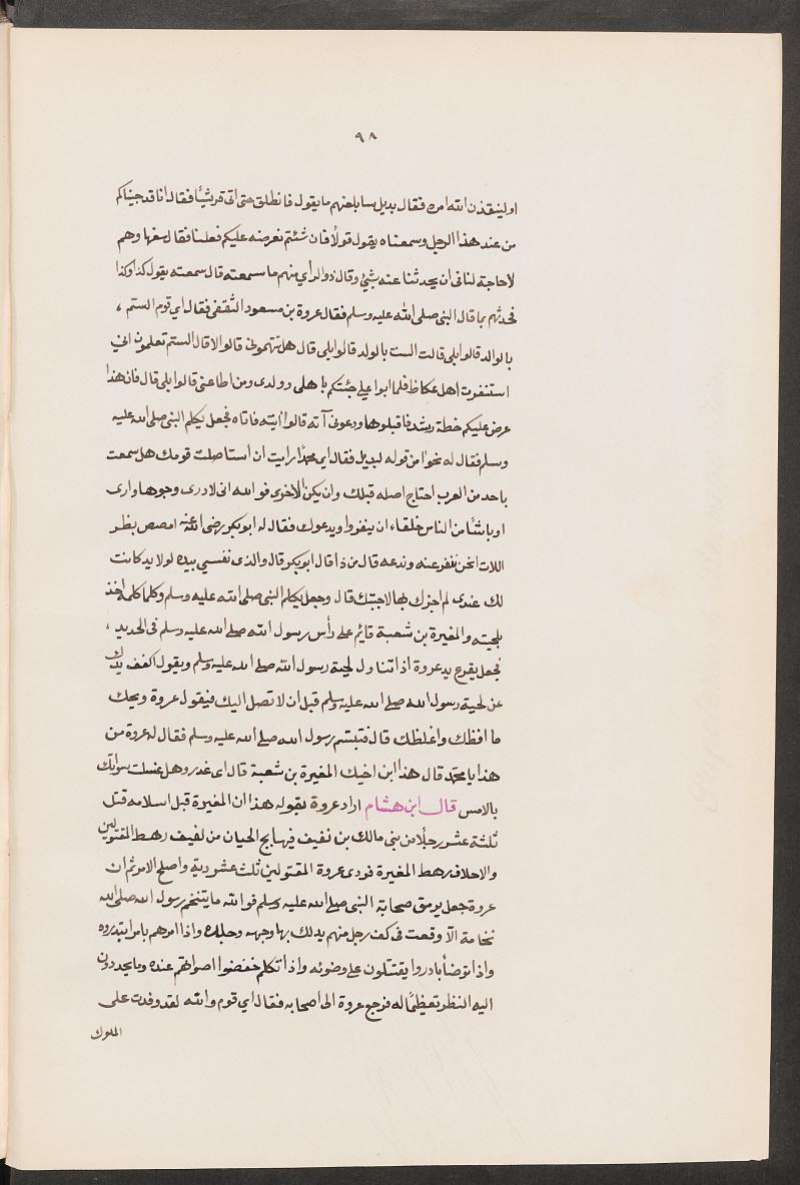 ٩٨
اولينفذن الله امره فقال بديل سابلغهم ما يقول فانطلق حتى اتى قريشًا فقال انا قد جيناكم
من عند هذا الرجل وسمعناه يقول قولًا فان شئتم نعرضه عليكم فعلنا فقال سفهاوهم
لا حاجة لنا فى ان يحدثنا عنه بشئ وقال ذو الراي منهم ما سمعته قال سمعته يقول كذا وكذا
فحدثهم بما قال النبى صلى الله عليه وسلم فقال عروة بن مسعود الثقفى فقال اي قوم الستم ،
بالوالد قالوا بلى قالت الست بالولد قالوا بلى قال هل تتهمونى قالوا لا قال الستم تعلمون اني
استنفرت اهل عكاظ فلما ابوا علي جئتكم باهلى وولدى ومن اطاعنى قالوا بلى قال فان هذا
عرض عليكم خطة رشد فاقبلوها ودعونى آته قالوا ايته فاتاه فجعل يكلم النبى صلى الله عليه
وسلم فقال له نحوا من قوله لبديل فقال اي محمد ارايت ان استاصلت قومك هل سمعت
باحد من العرب احتاج اصله قبلك وان يكن الاخرى فوالله انى لادرى وجوها وارى
اوباشًا من الناس خلقاء ان يفروا ويدعوك فقال له ابو بكر رضى الله عنه امصص بظر
اللات انحن نفر عنه وندعه قال من ذا قال ابو بكر قال والذى نفسي بيده لولا يد كانت
لك عندى لم اجزك بها لاجبتك قال وجعل يكلم النبى صلى الله عليه وسلم وكلما كلمه اخذ
بلحيته والمغيرة بن شعبة قايم على رأس رسول الله صلى الله عليه وسلم فى الحديد ،
فجعل يقرع يد عروة اذا تناول لحية رسول الله صلى الله عليه وسلم ويقول اكفف يدك
عن لحية رسول الله صلى الله عليه وسلم قبل ان لا تصل اليك فيقول عروة ويحك
ما افظك واغلظك قال فتبسّم رسول الله صلى الله عليه وسلم فقال له عروة من
هذا يا محمّد قال هذا ابن اخيك المغيرة بن شعبة قال اى غدر وهل غسلت سواتك
بالامس قال ابن هشام اراد عروة بقوله هذا ان المغيرة قبل اسلامه قتل
ثلثة عشر رجلًا من بنى مالك بن نفيف فهايج الحيان من لفيف رهط المقتولين
والاحلاف رهط المغيرة فودى عروة المقتولين ثلث عشر دية واصلح الامر ثم ان
عروة جعل يرمق صحابة النبى صلى الله عليه وسلم فوالله ما يتنخم رسول الله صلى الله
نخامة الّا وقعت فى كف رجل منهم يدلك بها وجهه وجلده واذا امرهم بامر ابتدروه
واذا توضأ بادروا يقتتلون على وضوئه واذا تكلم خفضوا اصواتهم عنده وما يحددون
اليه النظر تعظيمًا له فرجع عروة الى اصحابه فقال اي قوم والله لقد وفدت على
الملوك